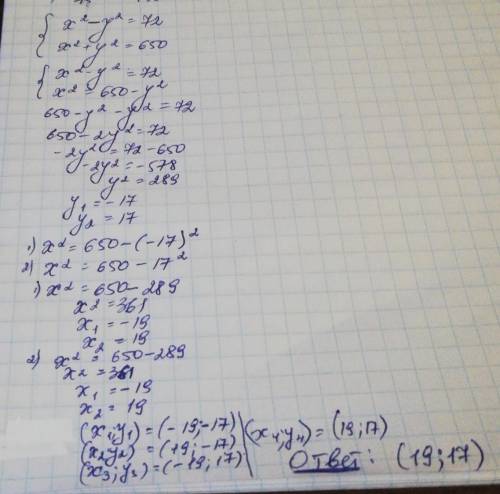 { x² - y² = 72
x² + y² = 650
{ x² - y² = 72
x² = 650 - y²
650 - y² - y² = 72
650 - 2y² = 72
-2y² = 72 - 650
-2y² = -578
y² = 289
y₁ = -17
y₂ = 17
1) x² = 650 - (-17)²
2) x² = 650 - 17²
1) x² = 650 - 289
x² = 361
x₁ = -19
x₂ = 19
2) x² = 650 - 289
x² = 361
x₁ = -19
x₂ = 19
(x₁; y₁) = (-19; -17)
(x₂ y₂) = (19; -17)
(x₃; y₃) = (-19; 17)
(x₄; y₄) = (19; 17)
Ответ: (19; 17)